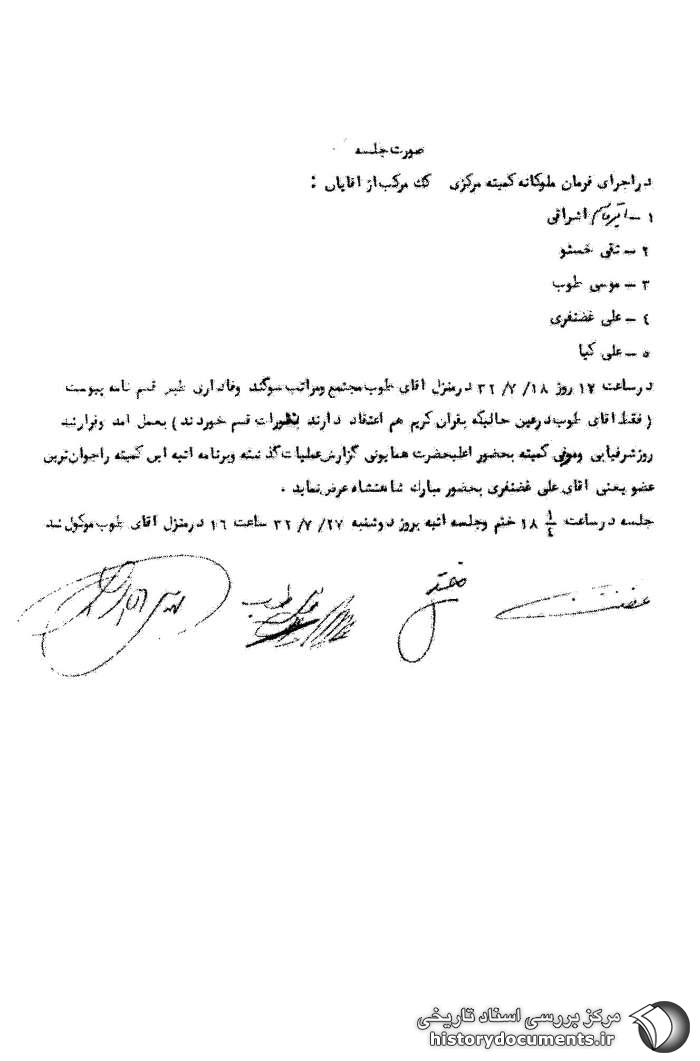 صورت جلسه
در اجرای فرمان ملوکانه کمیته مرکزی کک مرکب از اقایان :
۱ ــ اشراقی
۲ ــ تقی خسئو
۳ ــ موسی طوب
٤ ــ علی غضنفری
۵ ــ علی کیا
در ساعت ۱۷ روز ۱۸/ ۷/ ۳۲ در منزل اقای طوب مجتمع و مراتب سوگند وفاداری طبر قسم نامه پیوست
( فقط اقای طوب در عین حالیکه بقران کریم هم اعتقاد دارند بتورات قسم خوردند ) بعمل امد و قرار شد
روز شرفیابی کمیته بحضور اعلیحضرت همایونی گزارش عملیات گذشته و برنامه اتیه این کمیته را جوان‌ترین
عضو یعنی اقای علی غضنفری بحضور مبارک شاهنشاه عرض نماید .
جلسه در ساعت ۱/٤ ۱۸ ختم و جلسه اتیه بروز دوشنبه ۲۷/ ۷/ ۳۲ ساعت ۱٦ در منزل اقای طوب موکول شد
طوب
مرکز بررسی اسناد تاریخی
historydocuments.ir